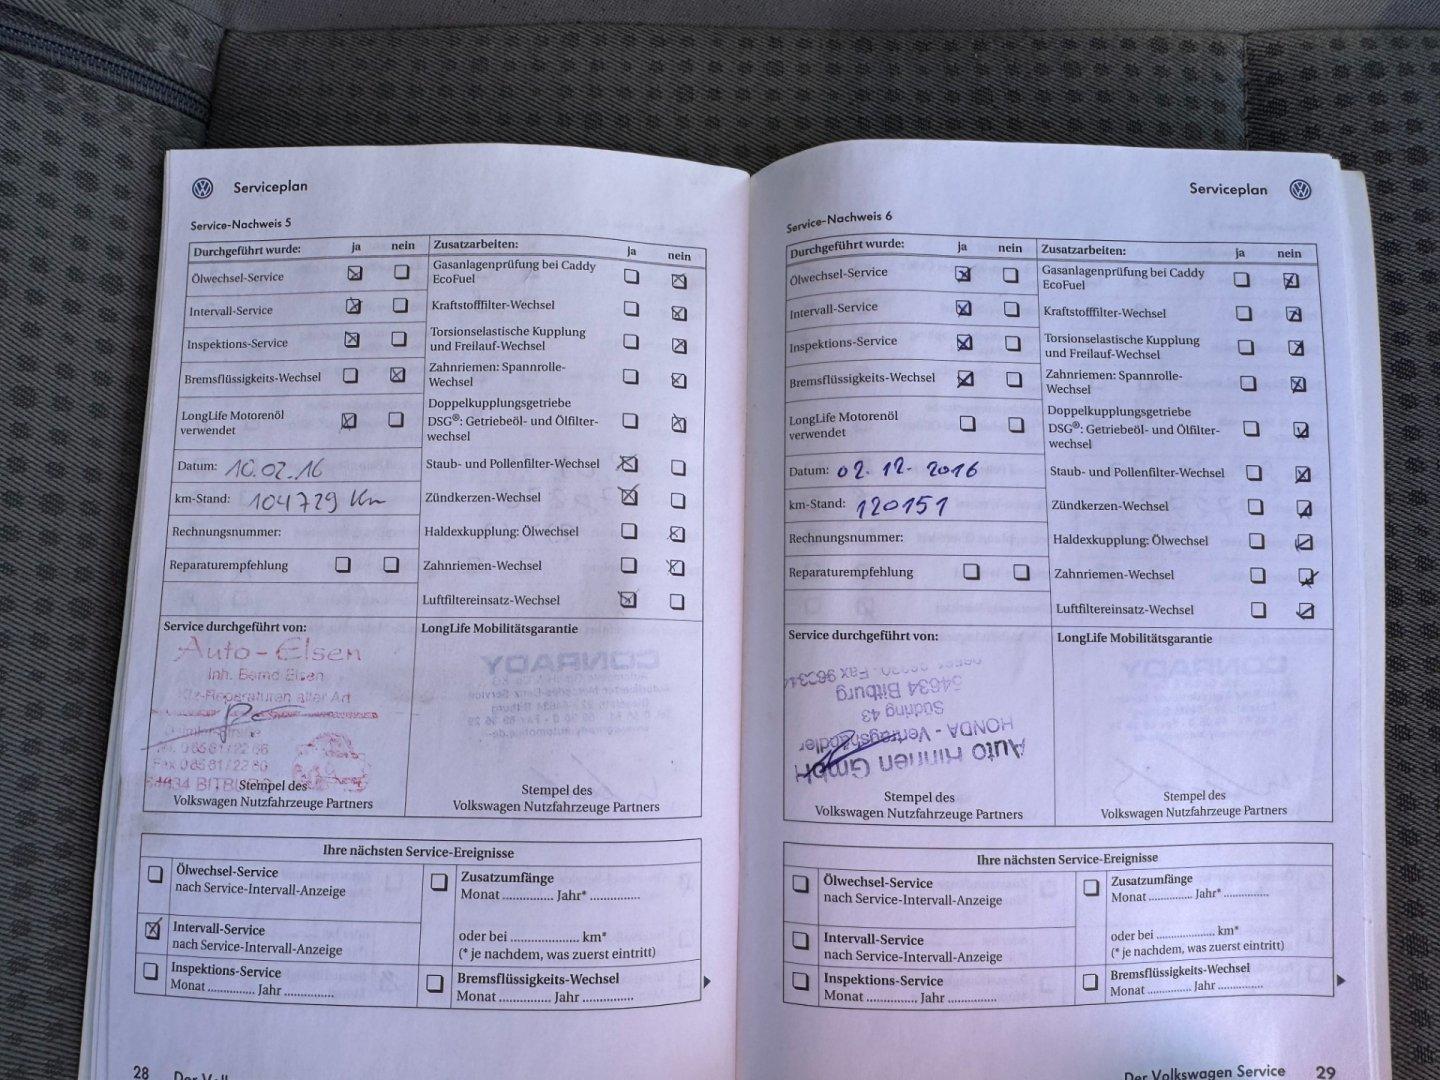 Serviceplan
Service-Nachweis 5
Durchgeführt wurde: ja nein
Ölwechsel-Service
Intervall-Service
Inspektions-Service
Bremsflüssigkeits-Wechsel
LongLife Motorenöl
verwendet
Datum: 10.02.16
km-Stand: 104729 Km
Rechnungsnummer:
Reparaturempfehlung
Zusatzarbeiten: ja nein
Gasanlagenprüfung bei Caddy
EcoFuel
Kraftstofffilter-Wechsel
Torsionselastische Kupplung
und Freilauf-Wechsel
Zahnriemen: Spannrolle-
Wechsel
Doppelkupplungsgetriebe
DSG®: Getriebeöl- und Ölfilter-
wechsel
Staub- und Pollenfilter-Wechsel
Zündkerzen-Wechsel
Haldexkupplung: Ölwechsel
Zahnriemen-Wechsel
Luftfiltereinsatz-Wechsel
Service durchgeführt von:
Auto-Elsen
Inh. Bernd Elsen
Kfz-Reparaturen aller Art
Stempel des
Volkswagen Nutzfahrzeuge Partners
LongLife Mobilitätsgarantie
CONRADY
Stempel des
Volkswagen Nutzfahrzeuge Partners
Ihre nächsten Service-Ereignisse
Ölwechsel-Service
nach Service-Intervall-Anzeige
Intervall-Service
nach Service-Intervall-Anzeige
Inspektions-Service
Monat .............. Jahr ..............
Zusatzumfänge
Monat .............. Jahr* ..............
oder bei ................... km*
(* je nachdem, was zuerst eintritt)
Bremsflüssigkeits-Wechsel
Monat .............. Jahr ..............
28
Serviceplan
Service-Nachweis 6
Durchgeführt wurde: ja nein
Ölwechsel-Service
Intervall-Service
Inspektions-Service
Bremsflüssigkeits-Wechsel
LongLife Motorenöl
verwendet
Datum: 02.12.2016
km-Stand: 120151
Rechnungsnummer:
Reparaturempfehlung
Zusatzarbeiten: ja nein
Gasanlagenprüfung bei Caddy
EcoFuel
Kraftstofffilter-Wechsel
Torsionselastische Kupplung
und Freilauf-Wechsel
Zahnriemen: Spannrolle-
Wechsel
Doppelkupplungsgetriebe
DSG®: Getriebeöl- und Ölfilter-
wechsel
Staub- und Pollenfilter-Wechsel
Zündkerzen-Wechsel
Haldexkupplung: Ölwechsel
Zahnriemen-Wechsel
Luftfiltereinsatz-Wechsel
Service durchgeführt von:
Auto Hinnen GmbH
HONDA - Vertragshändler
Südring 43
54634 Bitburg
Stempel des
Volkswagen Nutzfahrzeuge Partners
LongLife Mobilitätsgarantie
Stempel des
Volkswagen Nutzfahrzeuge Partners
Ihre nächsten Service-Ereignisse
Ölwechsel-Service
nach Service-Intervall-Anzeige
Intervall-Service
nach Service-Intervall-Anzeige
Inspektions-Service
Monat .............. Jahr ..............
Zusatzumfänge
Monat .............. Jahr* ..............
oder bei ................... km*
(* je nachdem, was zuerst eintritt)
Bremsflüssigkeits-Wechsel
Monat .............. Jahr ..............
Der Volkswagen Service 29